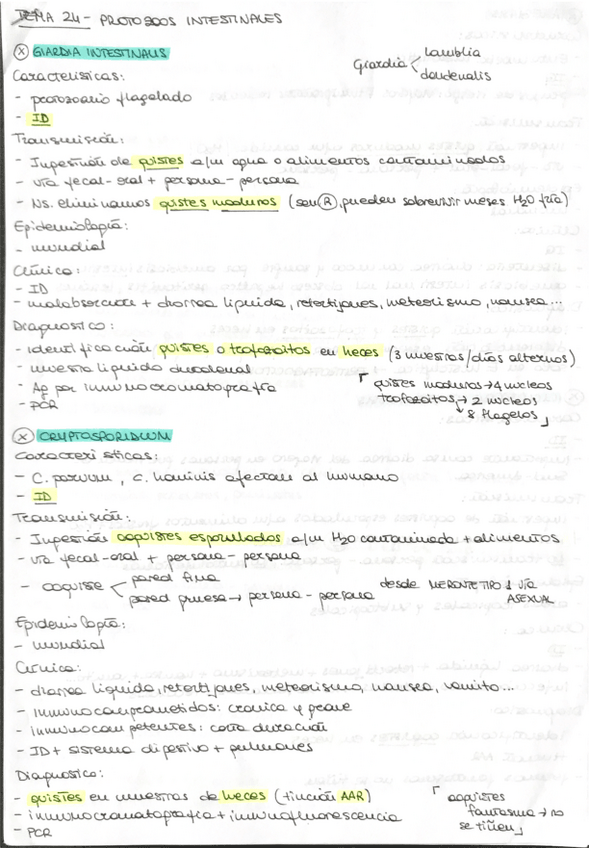 TEMA 24 - PROTOZOOS INTESTINALES
Ⓧ GIARDIA INTESTINALIS
Giardia < lamblia
duodenalis
Características:
- protozoario flagelado
- ID
Transmisión:
- Ingestión de quistes a/m agua o alimentos contaminados
- vía fecal-oral + persona-persona
- Ns. eliminamos quistes maduros (son Ⓡ, pueden sobrevivir meses H2O fría)
Epidemiología:
- mundial
Clínica:
- ID
- malabsorción + diarrea líquida, retortijones, meteorismo, nausea...
Diagnostico:
- identificación quistes o trofozoitos en heces (3 muestras/días alternos)
- muestra líquido duodenal
- Ag por inmunocromatografía
- PCR
⌜ quistes maduros → 4 núcleos
trofozoitos → 2 núcleos
↘ 8 flagelos ⌟
Ⓧ CRYPTOSPORIDIUM
Características:
- C. parvum, C. hominis afectan al humano
- ID
Transmisión:
- Ingestión ooquistes esporulados a/m H2O contaminada + alimentos
- vía fecal-oral + persona-persona
- ooquiste < pared fina
pared gruesa → persona-persona
desde MERONTE TIPO 1 vía
ASEXUAL
Epidemiología:
- mundial
Clínica:
- diarrea líquida, retortijones, meteorismo, nausea, vomito...
- inmunocomprometidos: cronica y grave
- inmunocompetentes: corta duración
- ID + sistema digestivo + pulmones
Diagnostico:
- quistes en muestras de heces (tinción AAR)
- inmunocromatografía + inmunofluorescencia
- PCR
⌜ ooquistes
fantasma → no
se tiñen ⌟